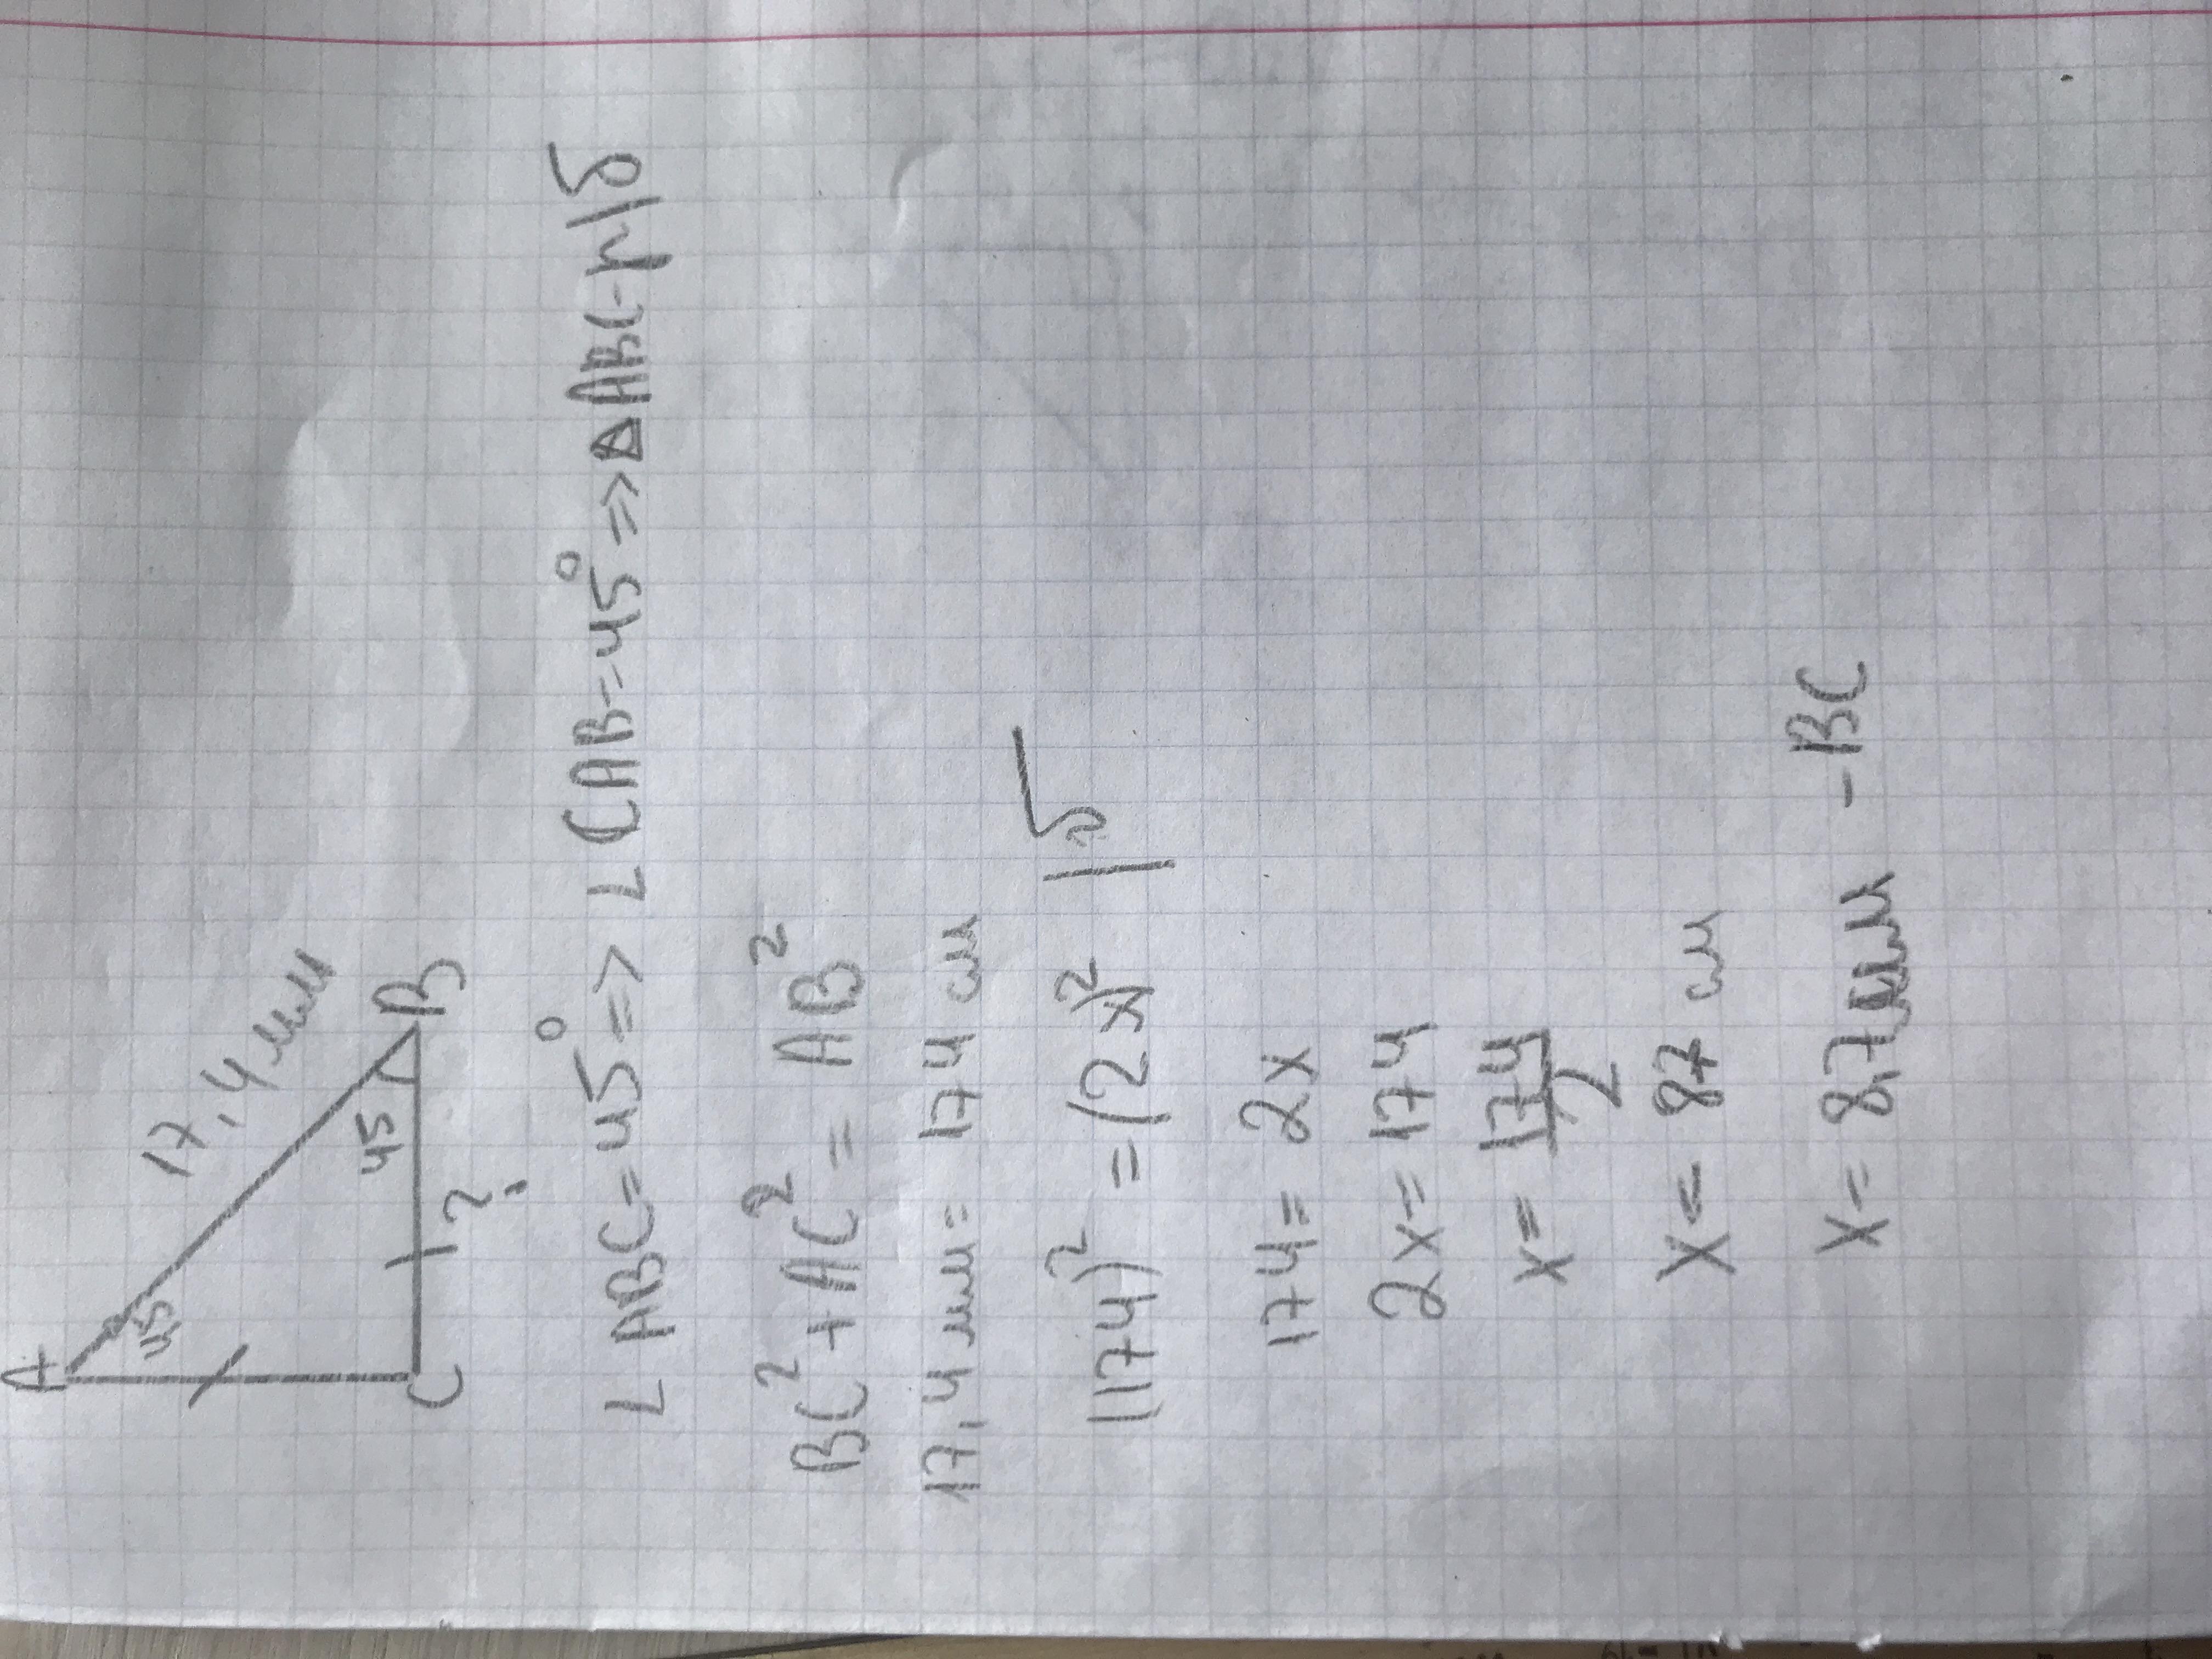 A
17,4 мм
45
45
C
?
B
∟ ABC = 45° => ∟ CAB - 45° => ΔABC - р/б
BC² + AC² = AB²
17,4 мм = 174 см
(174)² = (2x)² | √
174 = 2x
2x = 174
x = 174/2
x = 87 см
x = 8,7 мм - BC